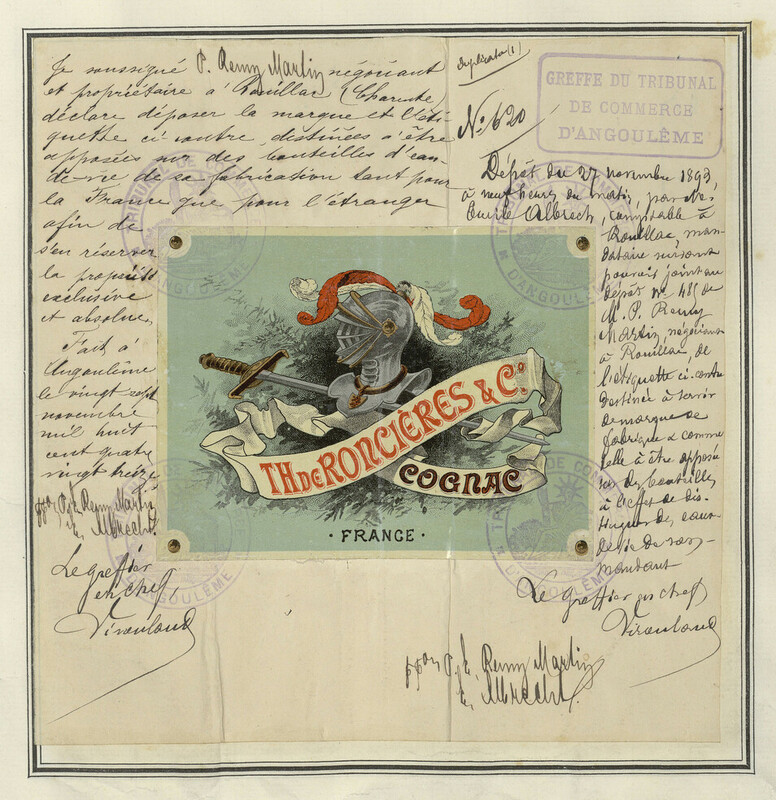 Je soussigné P. Remy Martin négociant
et propriétaire à Rouillac (Charente
déclare déposer la marque et l'éti-
quette ci-contre, destinées à être
apposées sur des bouteilles d'eau-
de-vie de sa fabrication tant pour
la France que pour l'étranger
afin de
s'en réserver
la propriété
exclusive
et absolue,
Fait à
Angoulême
le vingt sept
novembre
mil huit
cent quatre
vingt treize
ppon P. E. Remy Martin
E. Albrecht.
Le greffier
en chef,
Duplicata (1)
GREFFE DU TRIBUNAL
DE COMMERCE
D'ANGOULÊME
No 620
Dépôt du 27 novembre 1893,
à neuf heures du matin, par Mr
Emile Albrech, comptable à
Rouillac, man-
dataire suivant
pouvoir joint au
dépôt no 485 de
M. P. Remy
Martin, négociant
à Rouillac, de
l'étiquette ci-contre
destinée à servir
de marque de
fabrique & comme
telle à être apposée
sur des bouteilles
à l'effet de dis-
tinguer des eaux
de vie de son
mandant
Le greffier en chef
TH DE RONCIÈRES & Co.
COGNAC
· FRANCE ·
TRIBUNAL DE COMMERCE
D'ANGOULÊME
ppon P. E. Remy Martin
E. Albrecht.